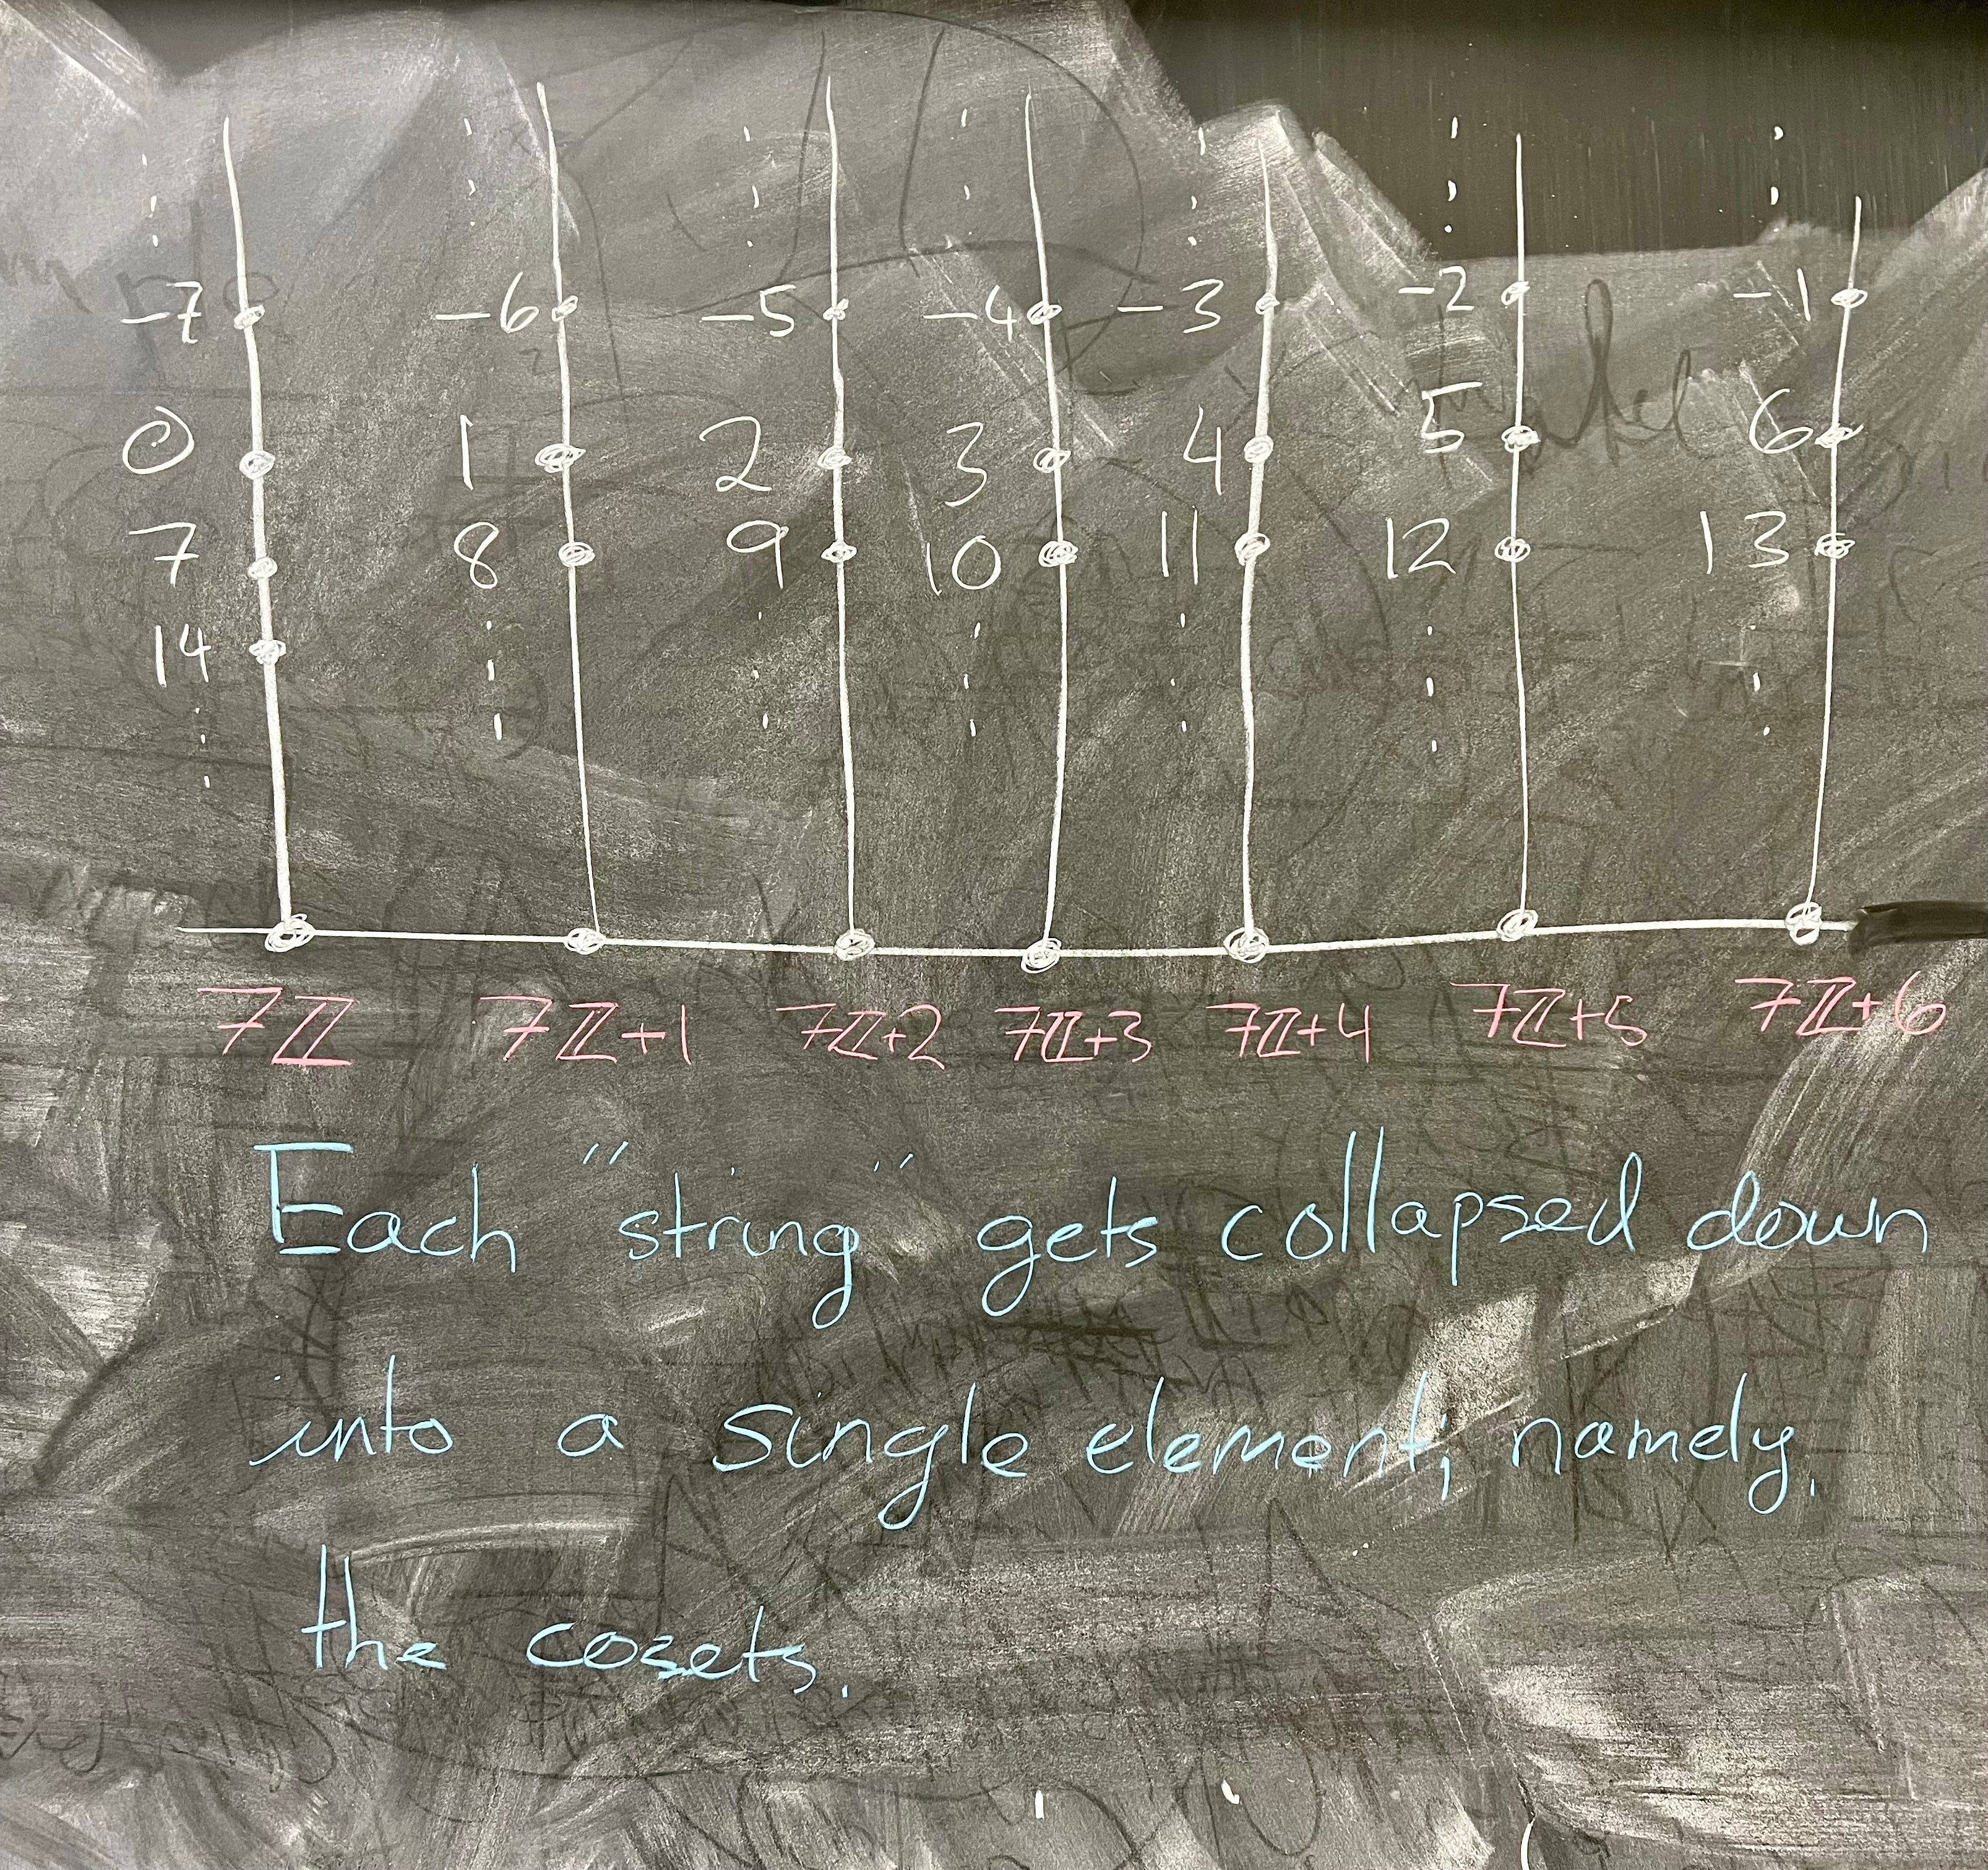 -7 -6 -5 -4 -3 -2 -1
0 1 2 3 4 5 6
7 8 9 10 11 12 13
14
7ℤ 7ℤ+1 7ℤ+2 7ℤ+3 7ℤ+4 7ℤ+5 7ℤ+6
Each "string" gets collapsed down
into a single element; namely,
the cosets.